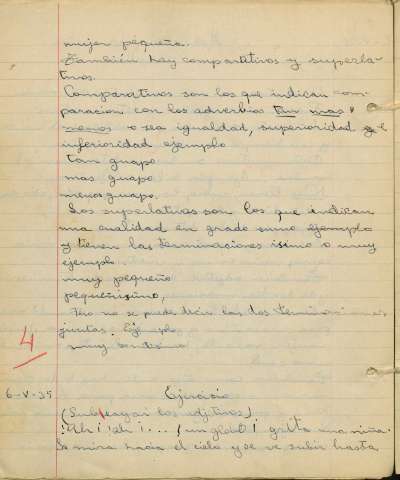 mujer pequeña.
También hay compartetivos y superla-
tivos.
Comparativos son los que indican com-
paracion con los adverbios tan mas y
menos o sea igualdad, superioridad, e
inferioridad ejemplo
tan guapo
mas guapo
menos guapo.
Los superlativos son los que indican
una cualidad en grado sumo ejemplo
y tienen las terminaciones isimo o muy
ejemplo.
muy pequeño
pequeñisimo,
Pero no se puede decir las dos terminaciones
juntas. Ejemplo
muy
4
6-V-35 Ejercicio
(Subrayar los adjetivos)
¡Ah! ¡ah! ... ¡un globo! grita una niña.
Se mira hacia el cielo y se ve subir hasta